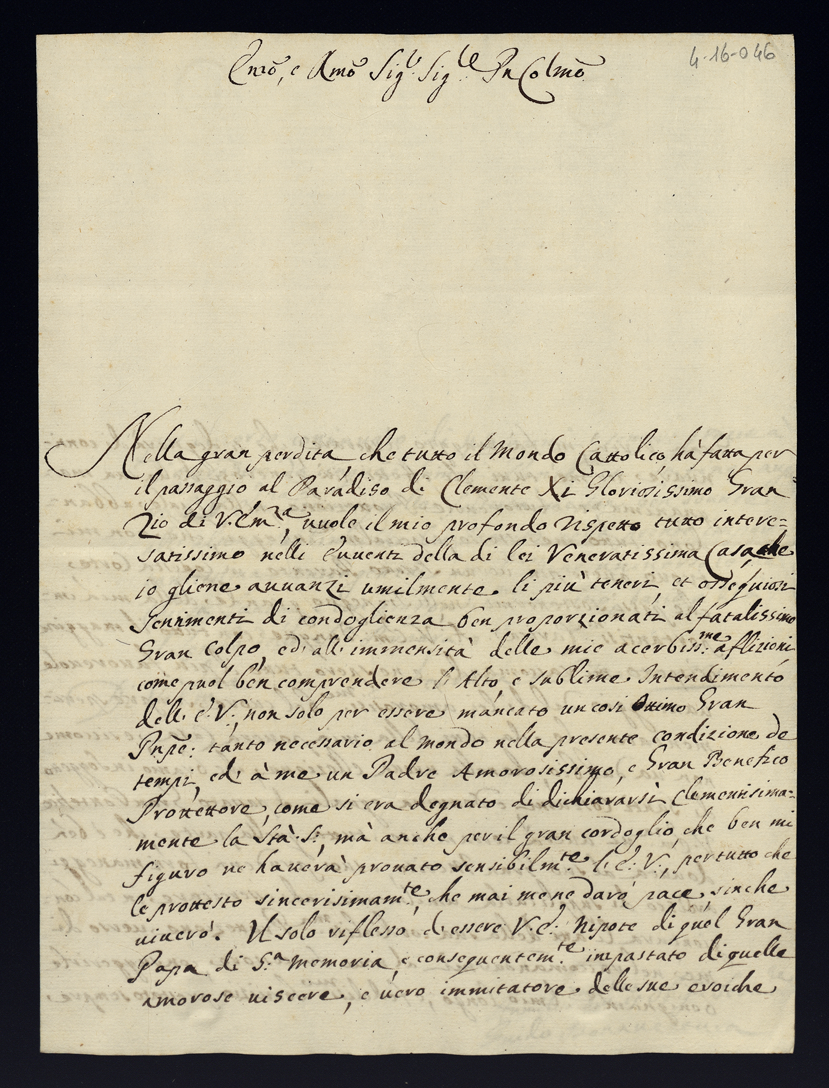 4-16-046
Emõ, e Rmõ Sig.r Sig.r P̃n Colmõ
Nella gran perdita, che tutto il Mondo Cattolico hà fatta per
il passaggio al Paradiso di Clemente XI Gloriosissimo Gran
Zio di V. Em.a, vuole il mio profondo rispetto tutto intere=
satissimo nelli evventi della di lei Veneratissima Casa, che
io gliene avvanzi umilmente li più teneri, et ossequiosi
Sentimenti di condoglienza ben proporzionati al fatalissimo
Gran Colpo, ed all' immensità delle mie acerbiss.me afflizioni,
come puol ben comprendere l' Alto, e sublime Intendimento
dell' E. V., non solo per essere mancato un così Ottimo Gran
Pñpe: tanto necessario al mondo nella presente condizione de
tempi, ed à me un Padre Amorosissimo, e Gran Benefico
Protettore, come si era degnato di dichiararsi Clementissima=
mente la Stà. S., mà anche per il gran cordoglio, che ben mi
figuro ne haverà provato sensibilm.te l' E. V., per tutto che
le protesto sincerisimam.te, che mai me ne darò pace, sin che
viverò. Il solo riflesso d' essere V. E. Nipote di quel Gran
Papa di S.a memoria, e conseguentem.te impastato di quelle
amorose viscere, e vero immitatore delle sue eroiche